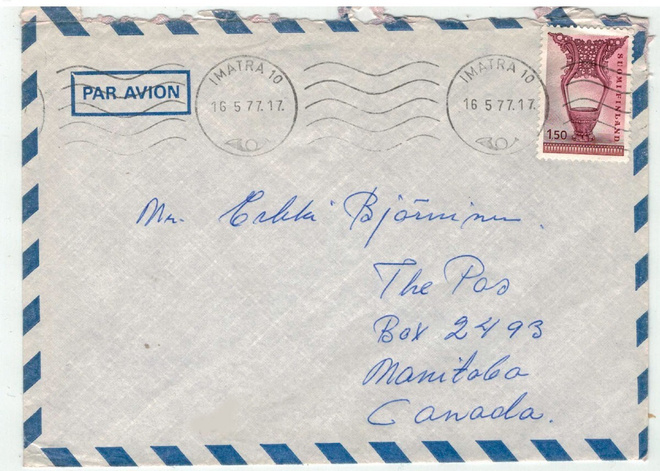 IMATRA 10
16.5.77.17.
IMATRA 10
16.5.77.17.
SUOMI-FINLAND
1.50
PAR AVION
Mr. Erkki
The Pas
Box 2493
Manitoba
Canada.